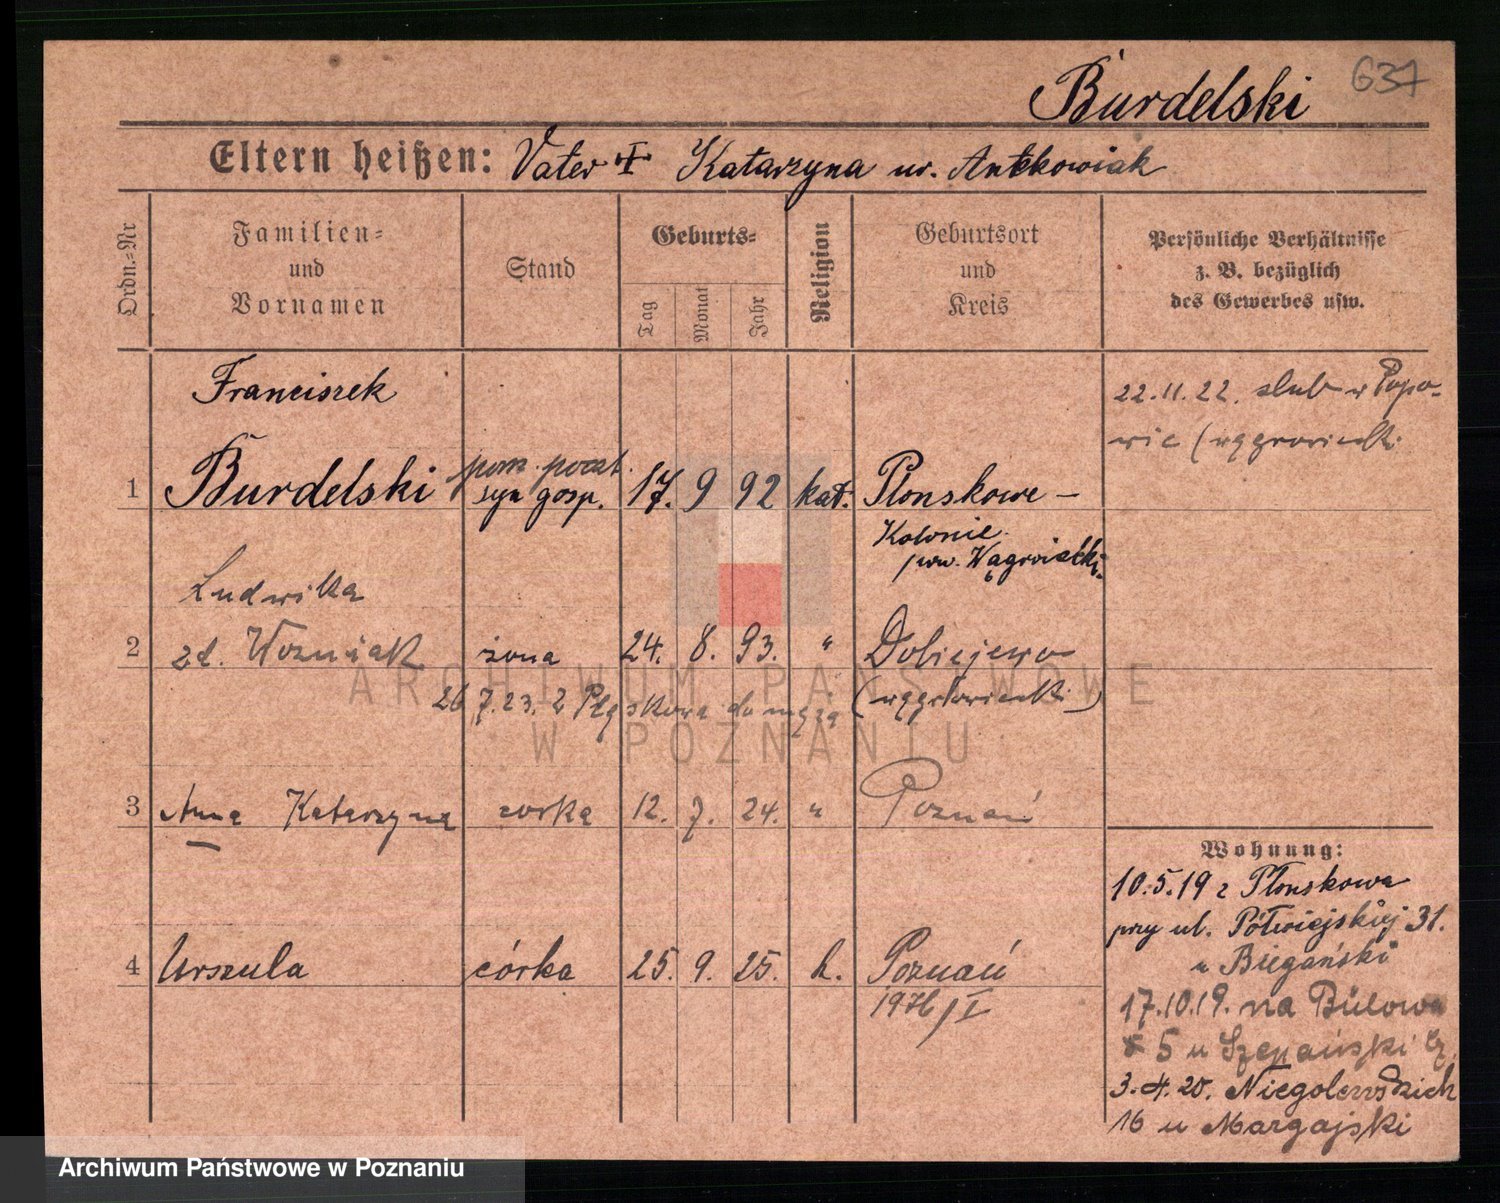 Burdelski 637
Eltern heißen: Vater † Katarzyna ur. Antkowiak
Ordn.-Nr
Familien-
und
Vornamen
Stand
Geburts-
Tag Monat Jahr
Religion
Geburtsort
und
Kreis
Persönliche Verhältnisse
z. B. bezüglich
des Gewerbes usw.
Franciszek
1 Burdelski
pom. poczt.
syn gosp.
17. 9 92 kat. Płonskowe –
Kolonie
pow. Wągrowiecki
22.11.22. slub w Popo-
wie (wągrowiecki
Ludwika
2 zd. Wozniak żona 24. 8. 93. " Dobiejewo
(wągrowiecki)
26 7.23. z Płąskowa do męża
3 Anna Katarzyna corka 12. 7. 24. " Poznań
4 Urszula córka 25. 9. 25. k. Poznań
1976/I
Wohnung:
10.5.19 z Płonskowa
przy ul. Półwiejskiej 31.
u Biegański
17.10.19. na Bülowa
5 u Szepański
3.4.20. Niegolewskich
16 u Margajski
ARCHIWUM PAŃSTWOWE
W POZNANIU
Archiwum Państwowe w Poznaniu